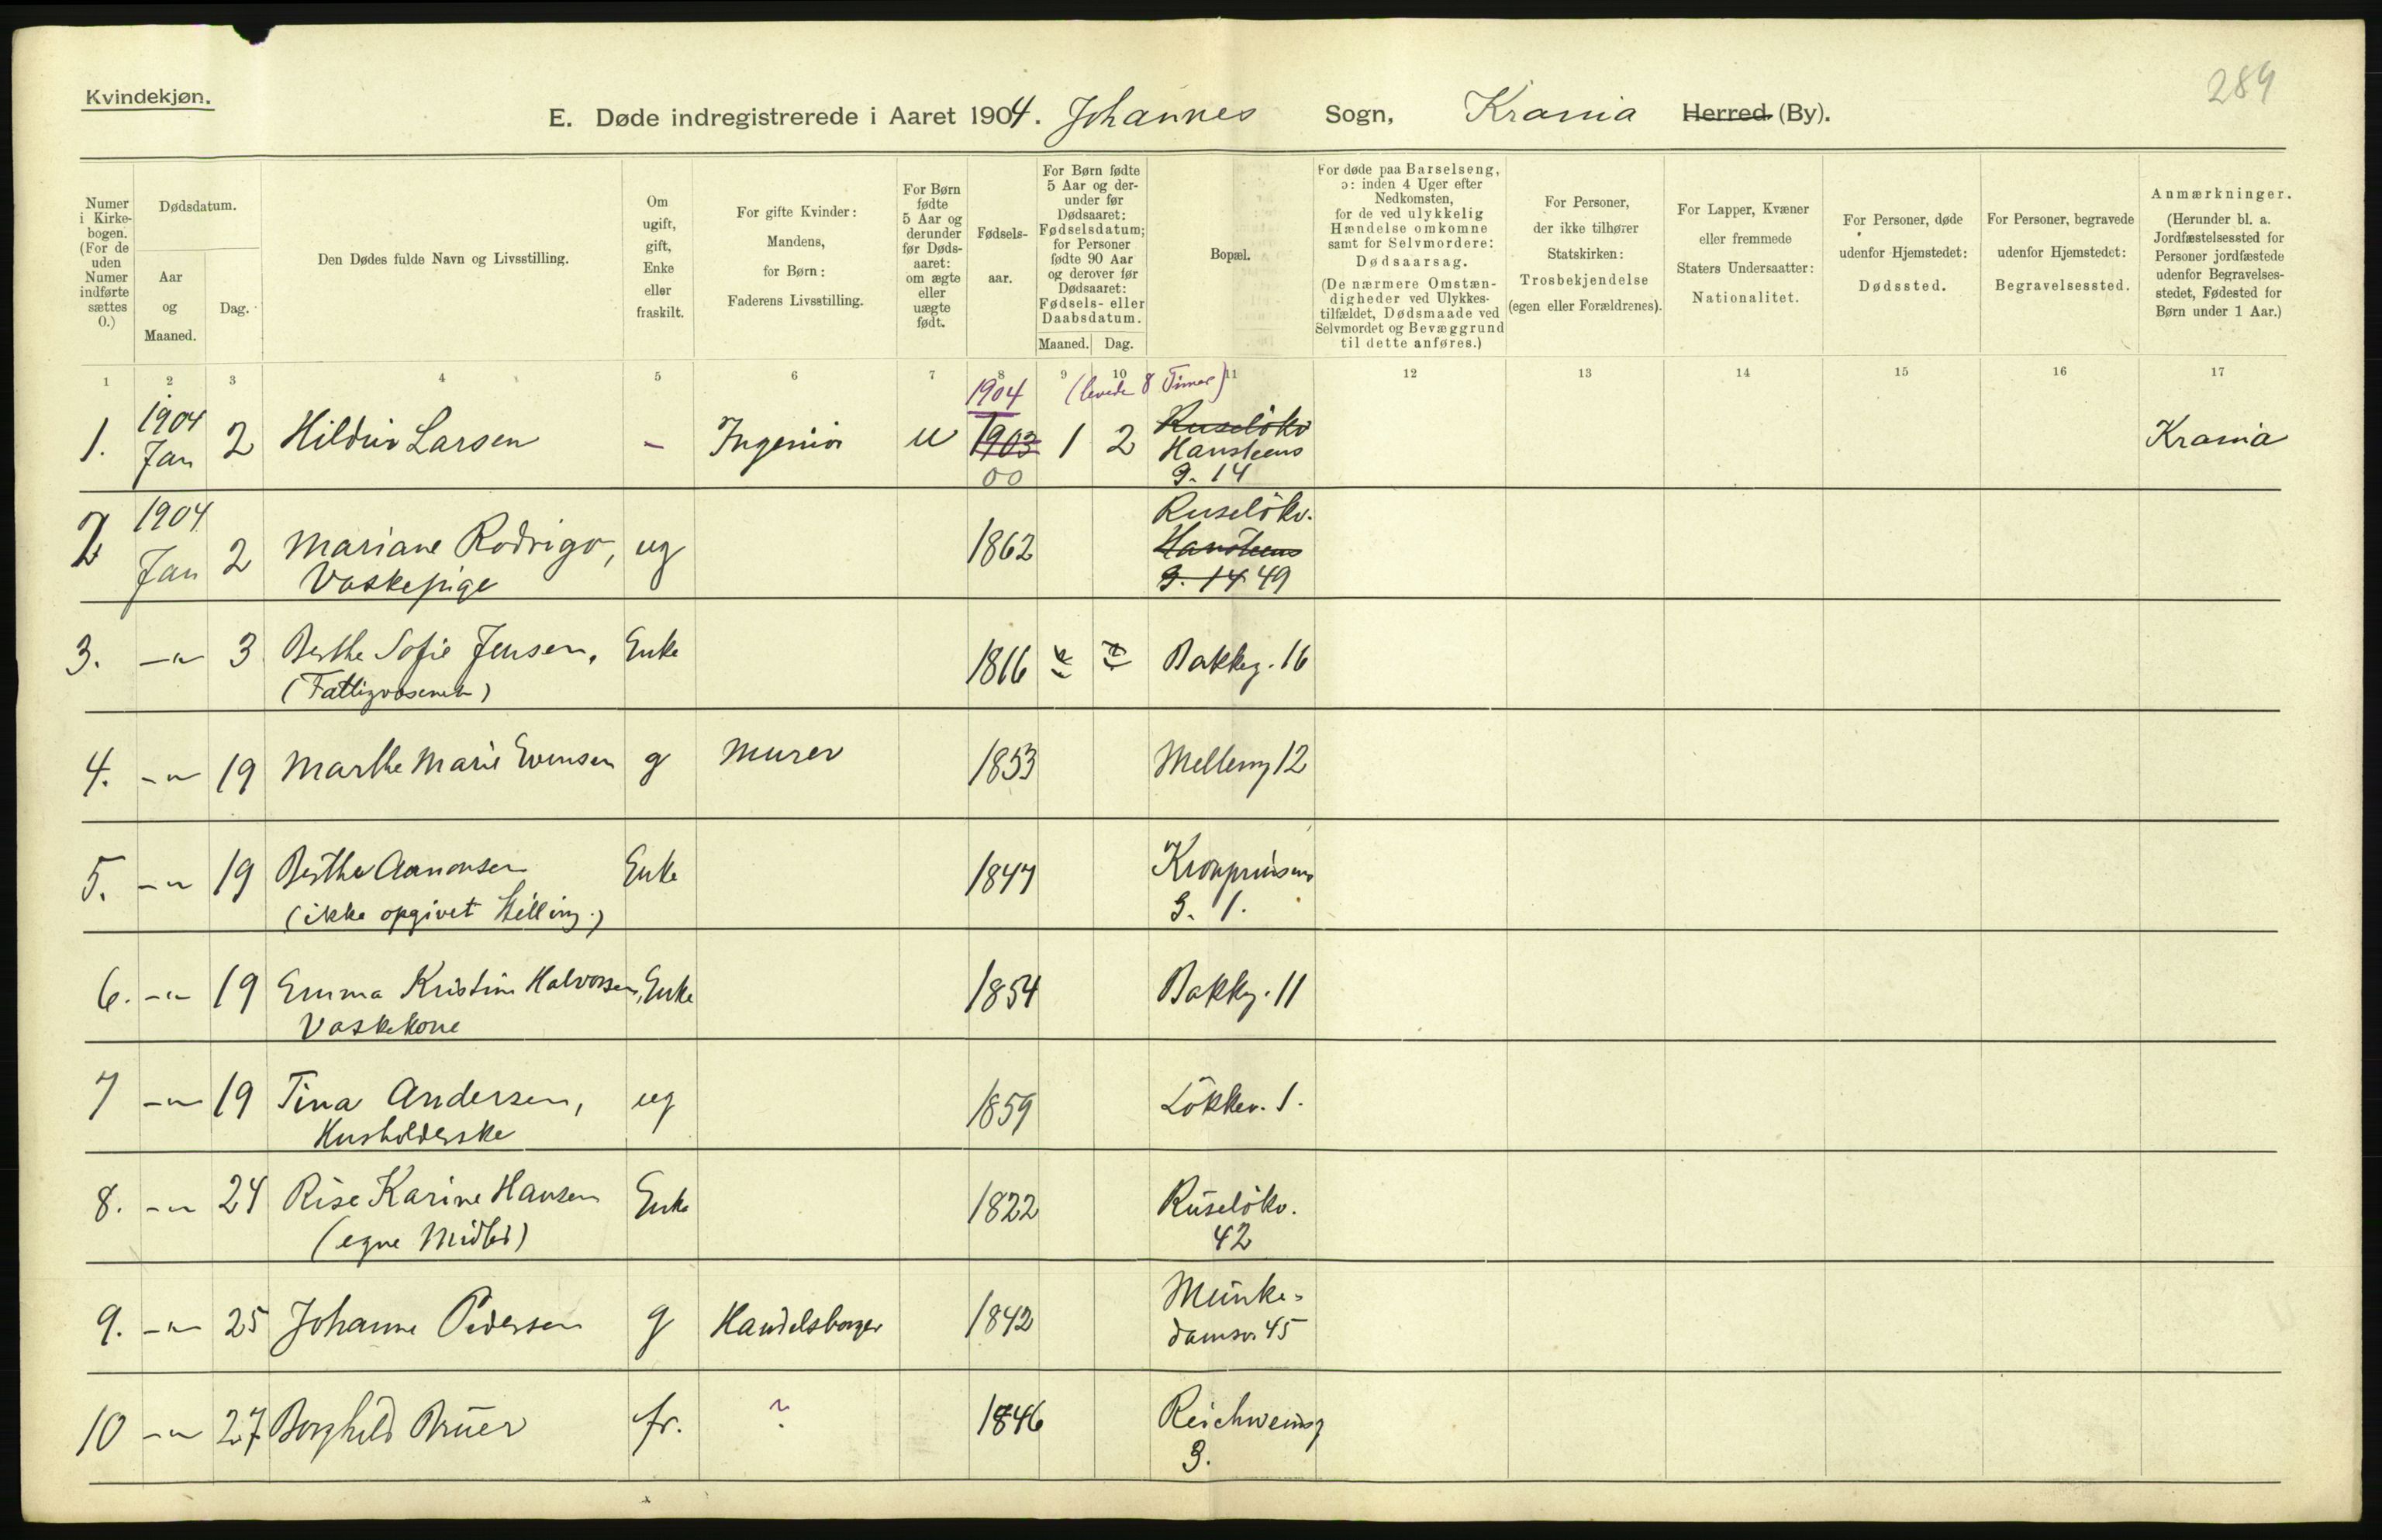 Kvindekjøn.
289
E. Døde indregistrerede i Aaret 1904. Johannes Sogn, Krania Herred (By).
Numer i Kirkebogen. (For de uden Numer indførte sættes 0.)
Dødsdatum.
Aar og Maaned.
Dag.
Den Dødes fulde Navn og Livsstilling.
Om ugift, gift, Enke eller fraskilt.
For gifte Kvinder: Mandens, for Børn: Faderens Livsstilling.
For Børn fødte 5 Aar og derunder før Dødsaaret: om ægte eller uægte født.
Fødselsaar.
For Børn fødte 5 Aar og derunder før Dødsaaret: Fødselsdatum; for Personer fødte 90 Aar og derover før Dødsaaret: Fødsels- eller Daabsdatum.
Maaned. Dag.
Bopæl.
For døde paa Barselseng, ɔ: inden 4 Uger efter Nedkomsten, for de ved ulykkelig Hændelse omkomne samt for Selvmordere: Dødsaarsag.
(De nærmere Omstændigheder ved Ulykkestilfældet, Dødsmaade ved Selvmordet og Bevæggrund til dette anføres.)
For Personer, der ikke tilhører Statskirken: Trosbekjendelse (egen eller Forældrenes).
For Lapper, Kvæner eller fremmede Staters Undersaatter: Nationalitet.
For Personer, døde udenfor Hjemstedet: Dødssted.
For Personer, begravede udenfor Hjemstedet: Begravelsessted.
Anmærkninger.
(Herunder bl. a. Jordfæstelsessted for Personer jordfæstede udenfor Begravelsesstedet, Fødested for Børn under 1 Aar.)
1 2 3 4 5 6 7 8 9 10 11 12 13 14 15 16 17
1904 (levede 8 Timer)
1. 1904 Jan 2 Hildur Larsen - Ingeniør u 1903 1 2 Ruseløkv Hansteens G. 14 Krania
00
2 1904 Jan 2 Mariane Rodrigo, ug 1862 Ruseløkv. Hansteens
Vaskepige G. 14 49
3. -"- 3 Berthe Sofie Jensen, Enke 1816 Bakkeg. 16
(Fattigvæsenet)
4. -"- 19 Marthe Marie Evensen g Murer 1853 Mellemg 12
5. -"- 19 Berthe Aamonsen Enke 1847 Kronprinsens
(ikke opgivet Stilling.) G. 1.
6. -"- 19 Emma Kristine Halvorsen, Enke 1854 Bakkg. 11
Vaskekone
7 -"- 19 Tina Andersen, ug 1859 Løkkev. 1.
Husholderske
8. -"- 24 Rise Karine Hansen Enke 1822 Ruseløkv.
(egne Midler) 42
9. -"- 25 Johanne Pedersen g Handelsborger 1842 Munke-
damsv. 45
10 -"- 27 Borghild Bruer fr. ? 1846 Reichweinsg
3.